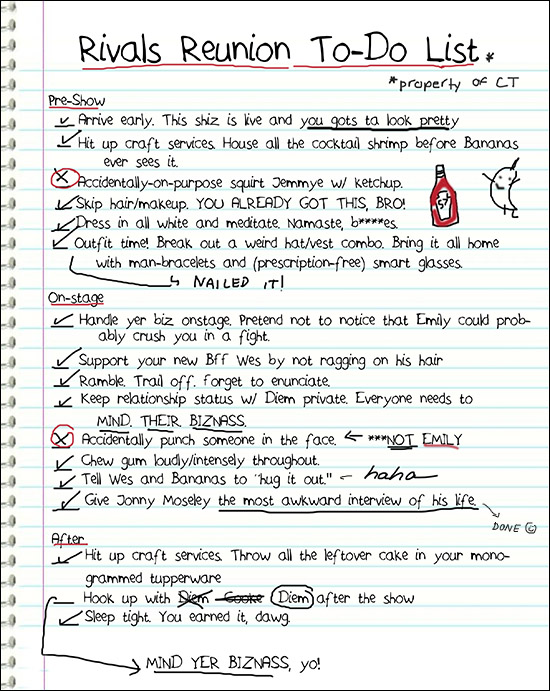 Rivals Reunion To-Do List *
*property of CT
Pre-Show
Arrive early. This shiz is live and you gots ta look pretty
Hit up craft services. House all the cocktail shrimp before Bananas
ever sees it.
Accidentally-on-purpose squirt Jemmye w/ ketchup.
Skip hair/makeup. YOU ALREADY GOT THIS, BRO!
Dress in all white and meditate. Namaste, b****es.
Outfit time! Break out a weird hat/vest combo. Bring it all home
with man-bracelets and (prescription-free) smart glasses.
NAILED IT!
57
On-stage
Handle yer biz onstage. Pretend not to notice that Emily could prob-
ably crush you in a fight.
Support your new Bff Wes by not ragging on his hair
Ramble. Trail off. Forget to enunciate.
Keep relationship status w/ Diem private. Everyone needs to
MIND. THEIR. BIZNASS.
Accidentally punch someone in the face. ← ***NOT EMILY
Chew gum loudly/intensely throughout.
Tell Wes and Bananas to "hug it out." - haha
Give Jonny Moseley the most awkward interview of his life.
DONE ☺
After
Hit up craft services. Throw all the leftover cake in your mono-
grammed tupperware
Hook up with Diem Cooke Diem after the show
Sleep tight. You earned it, dawg.
MIND YER BIZNASS, yo!